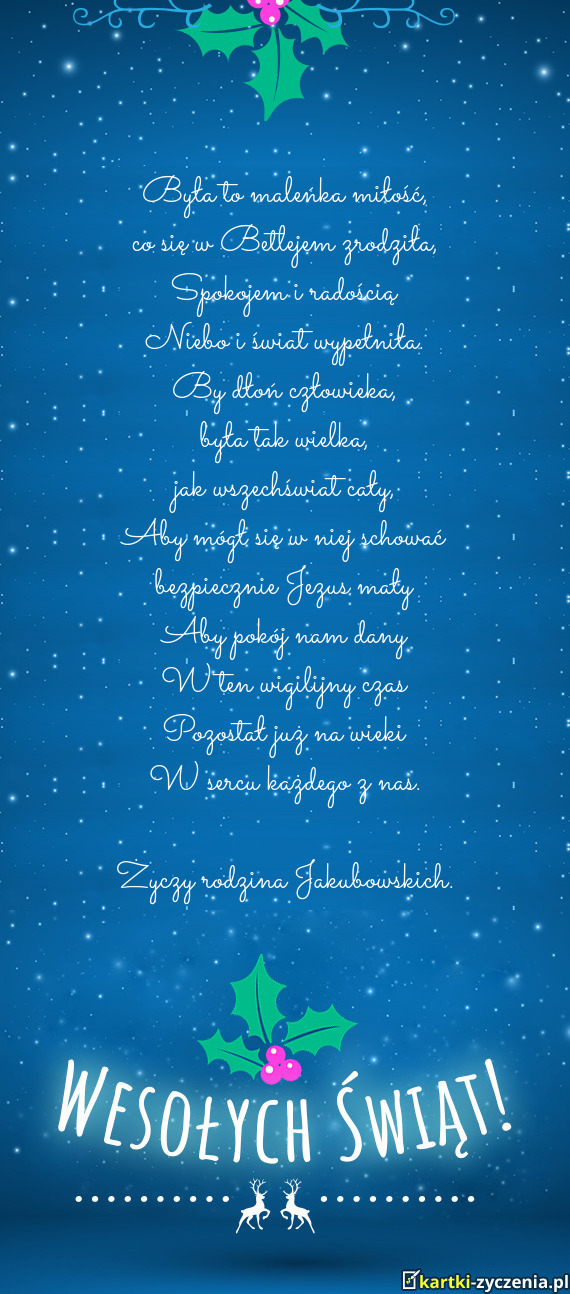 Była to maleńka miłość,
co się w Betlejem zrodziła,
Spokojem i radością
Niebo i świat wypełniła.
By dłoń człowieka,
była tak wielka,
jak wszechświat cały,
Aby mógł się w niej schować
bezpiecznie Jezus mały
Aby pokój nam dany
W ten wigilijny czas
Pozostał już na wieki
W sercu każdego z nas.
Życzy rodzina Jakubowskich.
Wesołych Świąt!
kartki-zyczenia.pl